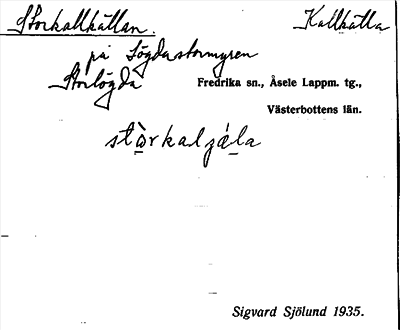 Storkallkällan. Kallkälla
på Lögdastormyren
Storlögda Fredrika sn., Åsele Lappm. tg.,
Västerbottens län.
Sigvard Sjölund 1935.